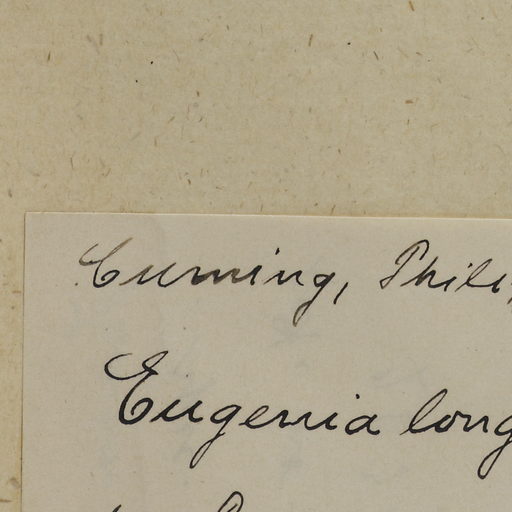 Cuming, Phili
Eugenia long